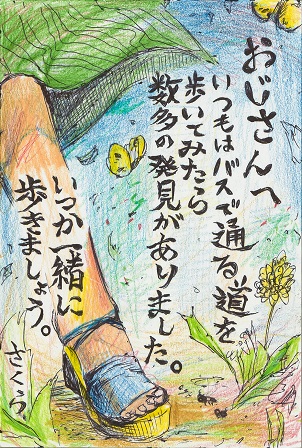 おじさんへ
いつもはバスで通る道を
歩いてみたら
数多の発見がありました。
いつか一緒に
歩きましょう。
さくら